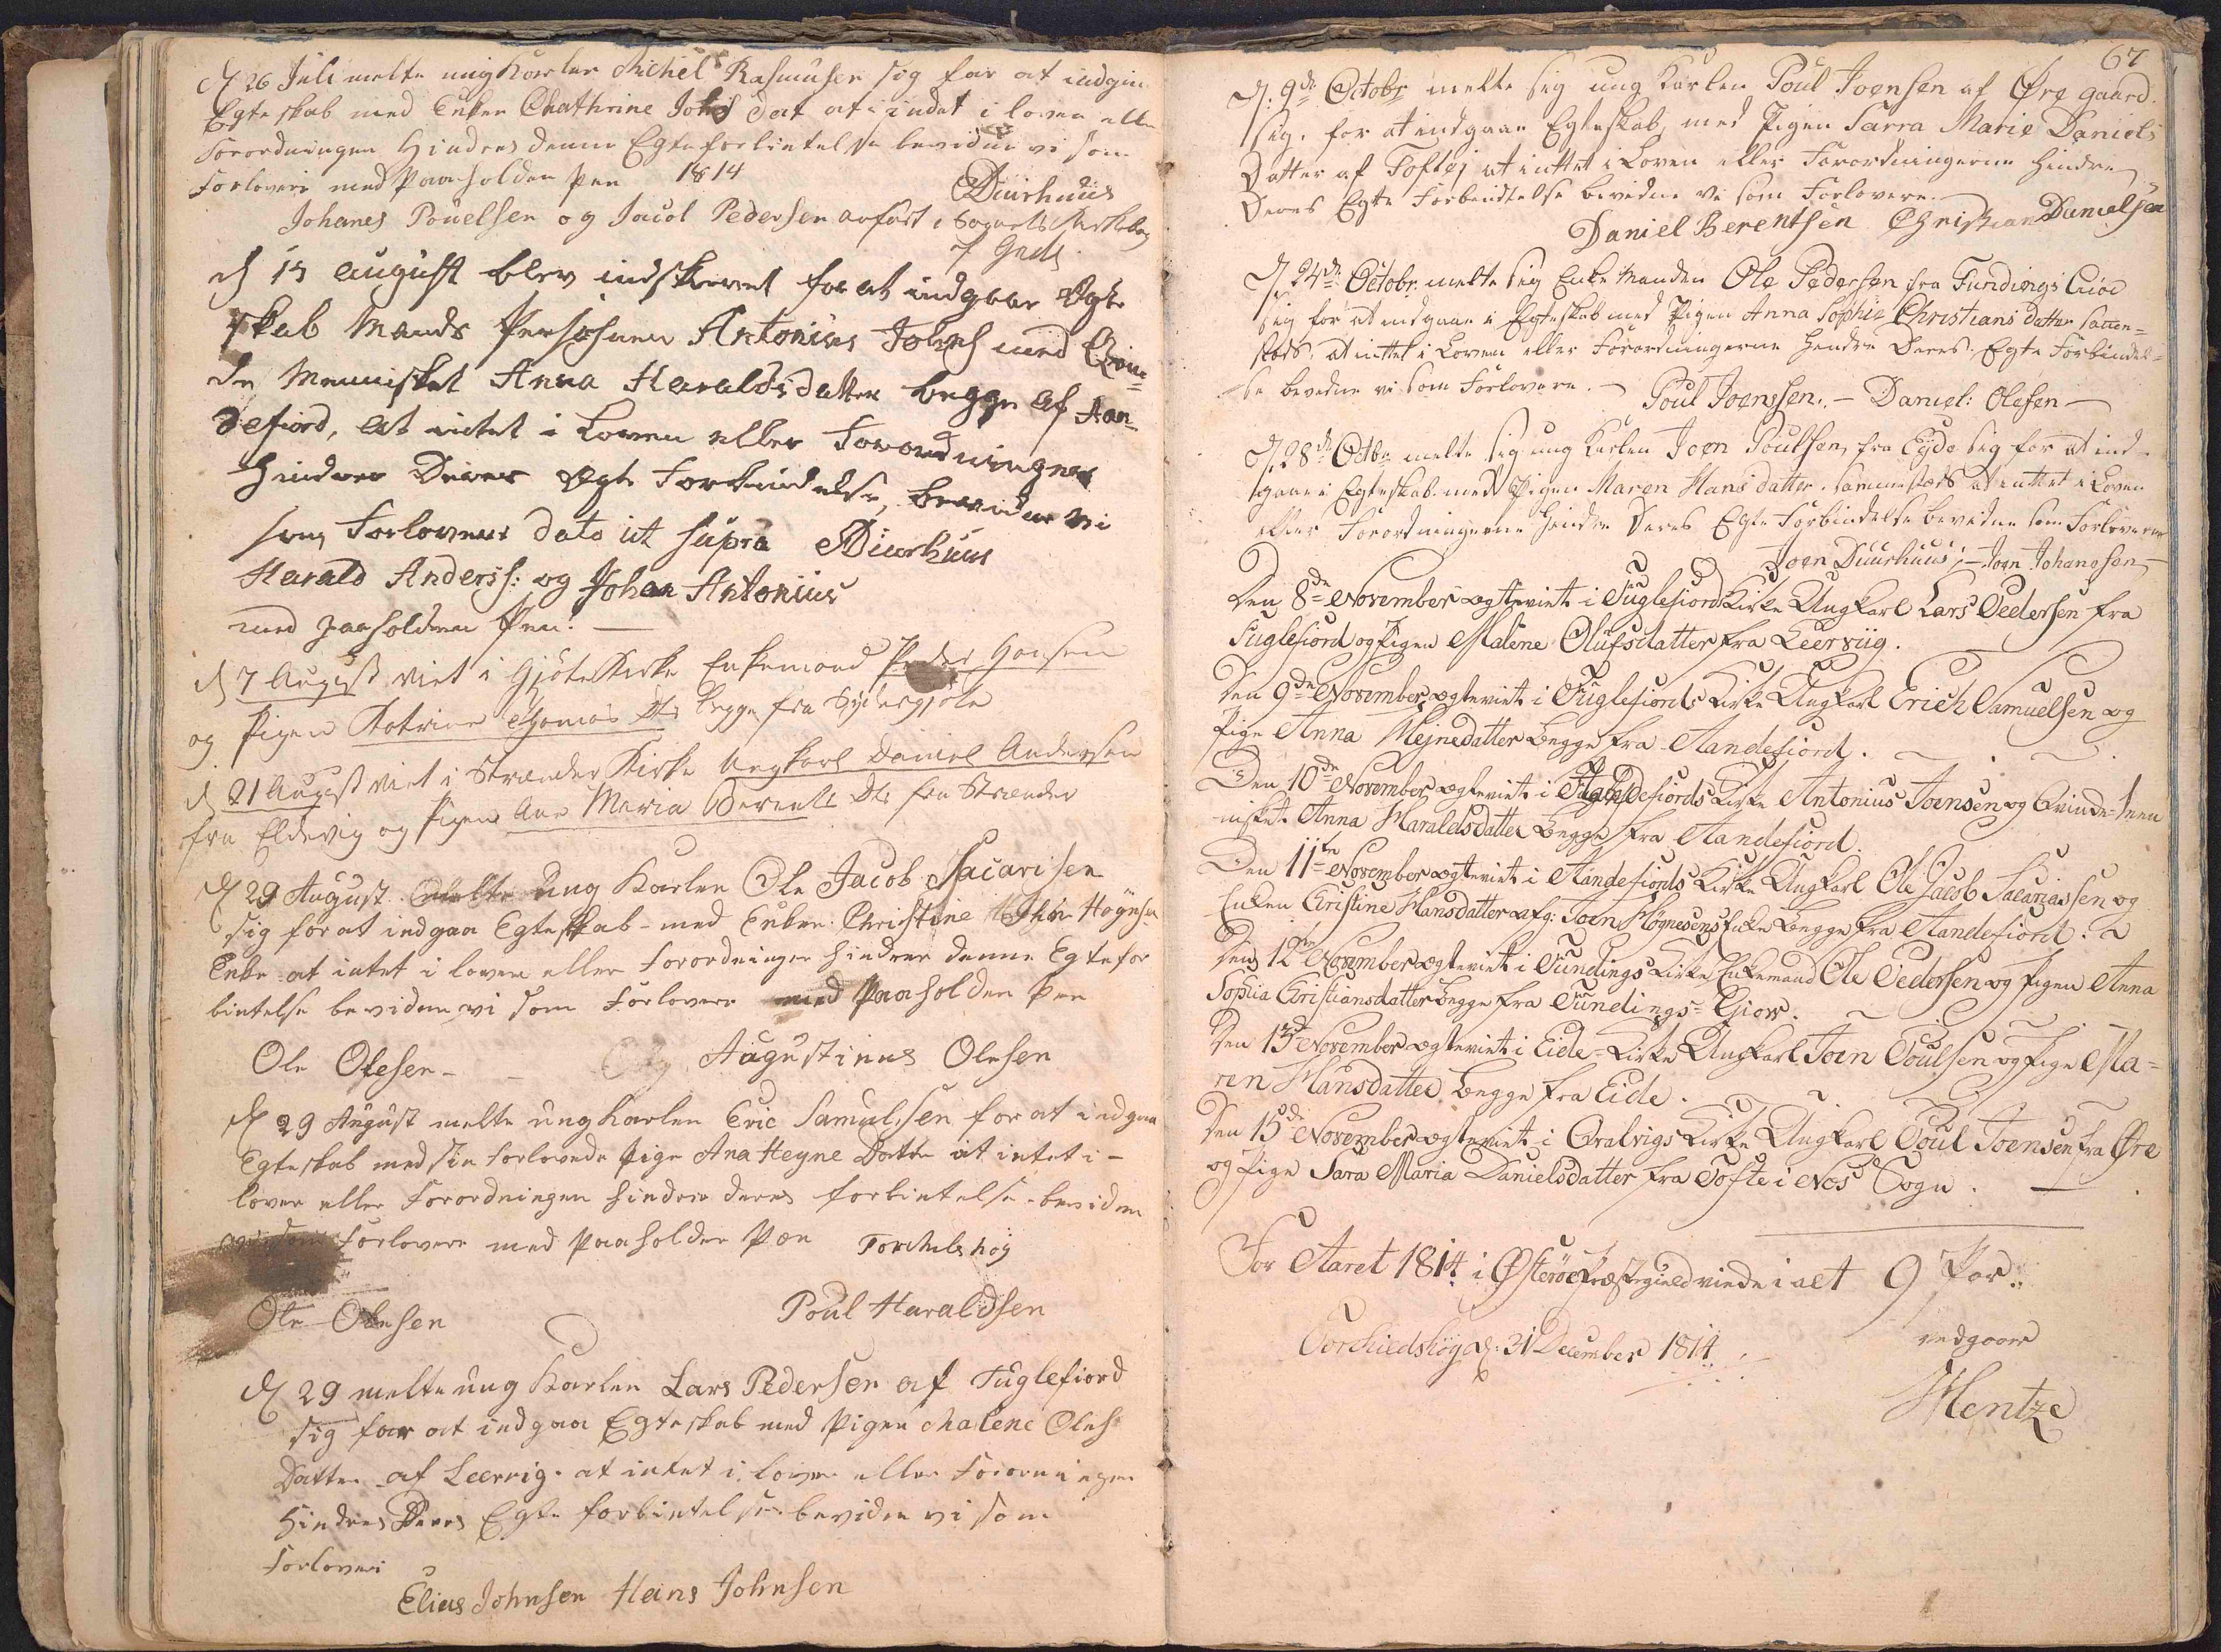 d 26 Juli melte ung Karlen Michel Rasmusen sig for at indgaa
Egteskab med Enken Chathrine Johs Dat at indet i loven eller
Forordningen Hindres denne Egteforbintelse bevidne vi som
Forlovere med Paaholden Pen 1814
Diurhuus
Johanes Pouelsen og Jacol Pedersen anført i Sognets
d 15 august blev indskrevet for at indgaae Ægte
skab Mands Personen Antonius Johns med Qvin-
de Mennisket Anna Haraldsdatter begge af Aan-
defiord, at intet i Loven eller Forordninger
hindrer Deres Ægte Forbindelse, bevidner vi
som Forlovere dato ut supra Diurhuus
Harald Anders: og Johan Antonius
med paaholden Pen. —
d 7 August viet i Gjöte Kirke Enkemand Peder Hansen
og Pigen Katrine Thomas Dtr begge fra Sydergjöte
d 21 August viet i Strænder Kirke Ungkarl Daniel Andersen
fra Eldevig og Pigen Ane Maria Berents Dtr fra Strænder
d 29 August melte Ung Karlen Ole Jacob Sacarisen
sig for at indgaa Egteskab med Enken Christine John Högnesn
Enke at intet i loven eller Forordninger hindrer denne Egtefor
bintelse bevidne vi som Forlovere med Paaholden Pen
Ole Olesen - - Og Augustinus Olesen
d 29 August melte ung Karlen Eric Samulsen for at indgaa
Egteskab med sin forlovede Pige Ana Heyne Datte at intet i -
loven eller Forordningen hindrer deres forbintelse bevidne
vi som Forlovere med Paaholden Pen Torchelshöy
Ole Olesen Poul Haraldsen
d 29 melte ung Karlen Lars Pedersen af Fuglefiord
sig for at indgaa Egteskab med Pigen Malene Oles
Datter af Leervig. at intet i loven eller Forordninger
Hindrer Deres Egte forbintelse bevidne vi som
Forlovere
Elias Johnsen Hans Johnsen
67
D: 9de Octobr melte sig ung Karlen Poul Joensen af Øre gaard
sig. for at indgaae Egteskab, med Pigen Sarra Marie Daniels
Datter af Toftej at intet i Loven eller Forordningerne hindrer
Deres Egte Forbindtelse bevidne vi som Forlovere.
Daniel Berentsen Christian Danielsen
D. 24de Octobr. melte sig Enke Manden Ole Pedersen fra Fundings
sig for at indgaae i Egteskab med Pigen Anna Sophie Christians datter samme-
steds, at inttet i Loven eller Forordningerne hindre Deres Egte Forbindel-
se bevidne vi som Forlovere. — Poul Joenssen. — Daniel: Olesen —
D. 28de Octbr melte sig ung Karlen Joen Poulsen fra Eyde sig for at ind-
gaae i Egteskab med Pigen Maren Hans datter sammesteds at inttet i Loven
eller Forordningerne hindre Deres Egte Forbindelse bevidne som Forlovere
Joen Duurhuus; — Joen Johanesen —
Den 8de November ægteviet i Fuglefiords Kirke Ungkarl Lars Pedersen fra
Fuglefiord og Pigen Malene Olufsdatter fra Leerviig.
Den 9de November ægteviet i Fuglefiords Kirke Ungkarl Erich Samuelsen og
Pige Anna Hejnedatter begge fra Aandefiord.
Den 10de November ægteviet i Fuglefiords Kirke Antonius Joensen og Qvinde-Men
nisket Anna Haraldsdatter begge fra Aandefiord.
Den 11te November ægteviet i Aandefiords Kirke Ungkarl Ole Jacob Sacariassen og
Enken Christine Hansdatter afg: Joen Högnesens Enke begge fra Aandefiord.
Den 12te November ægteviet i Fundings Kirke Enkemand Ole Pedersen og Pigen Anna
Sophia Christiansdatter begge fra Fundings-Gjov.
Den 13de November ægteviet i Eide-Kirke Ungkarl Joen Poulsen og Pige Ma-
ren Hansdatter begge fra Eide.
Den 15de November ægteviet i Qvalvigs Kirke Ungkarl Poul Joensen fra Øre
og Pige Sara Maria Danielsdatter fra Tofte i Nes Sogn.
For Aaret 1814 i Østeröe Præstegield viede i alt 9 Par.
Torchiedshöj d: 31 December 1814
vedgaaer
Hentze